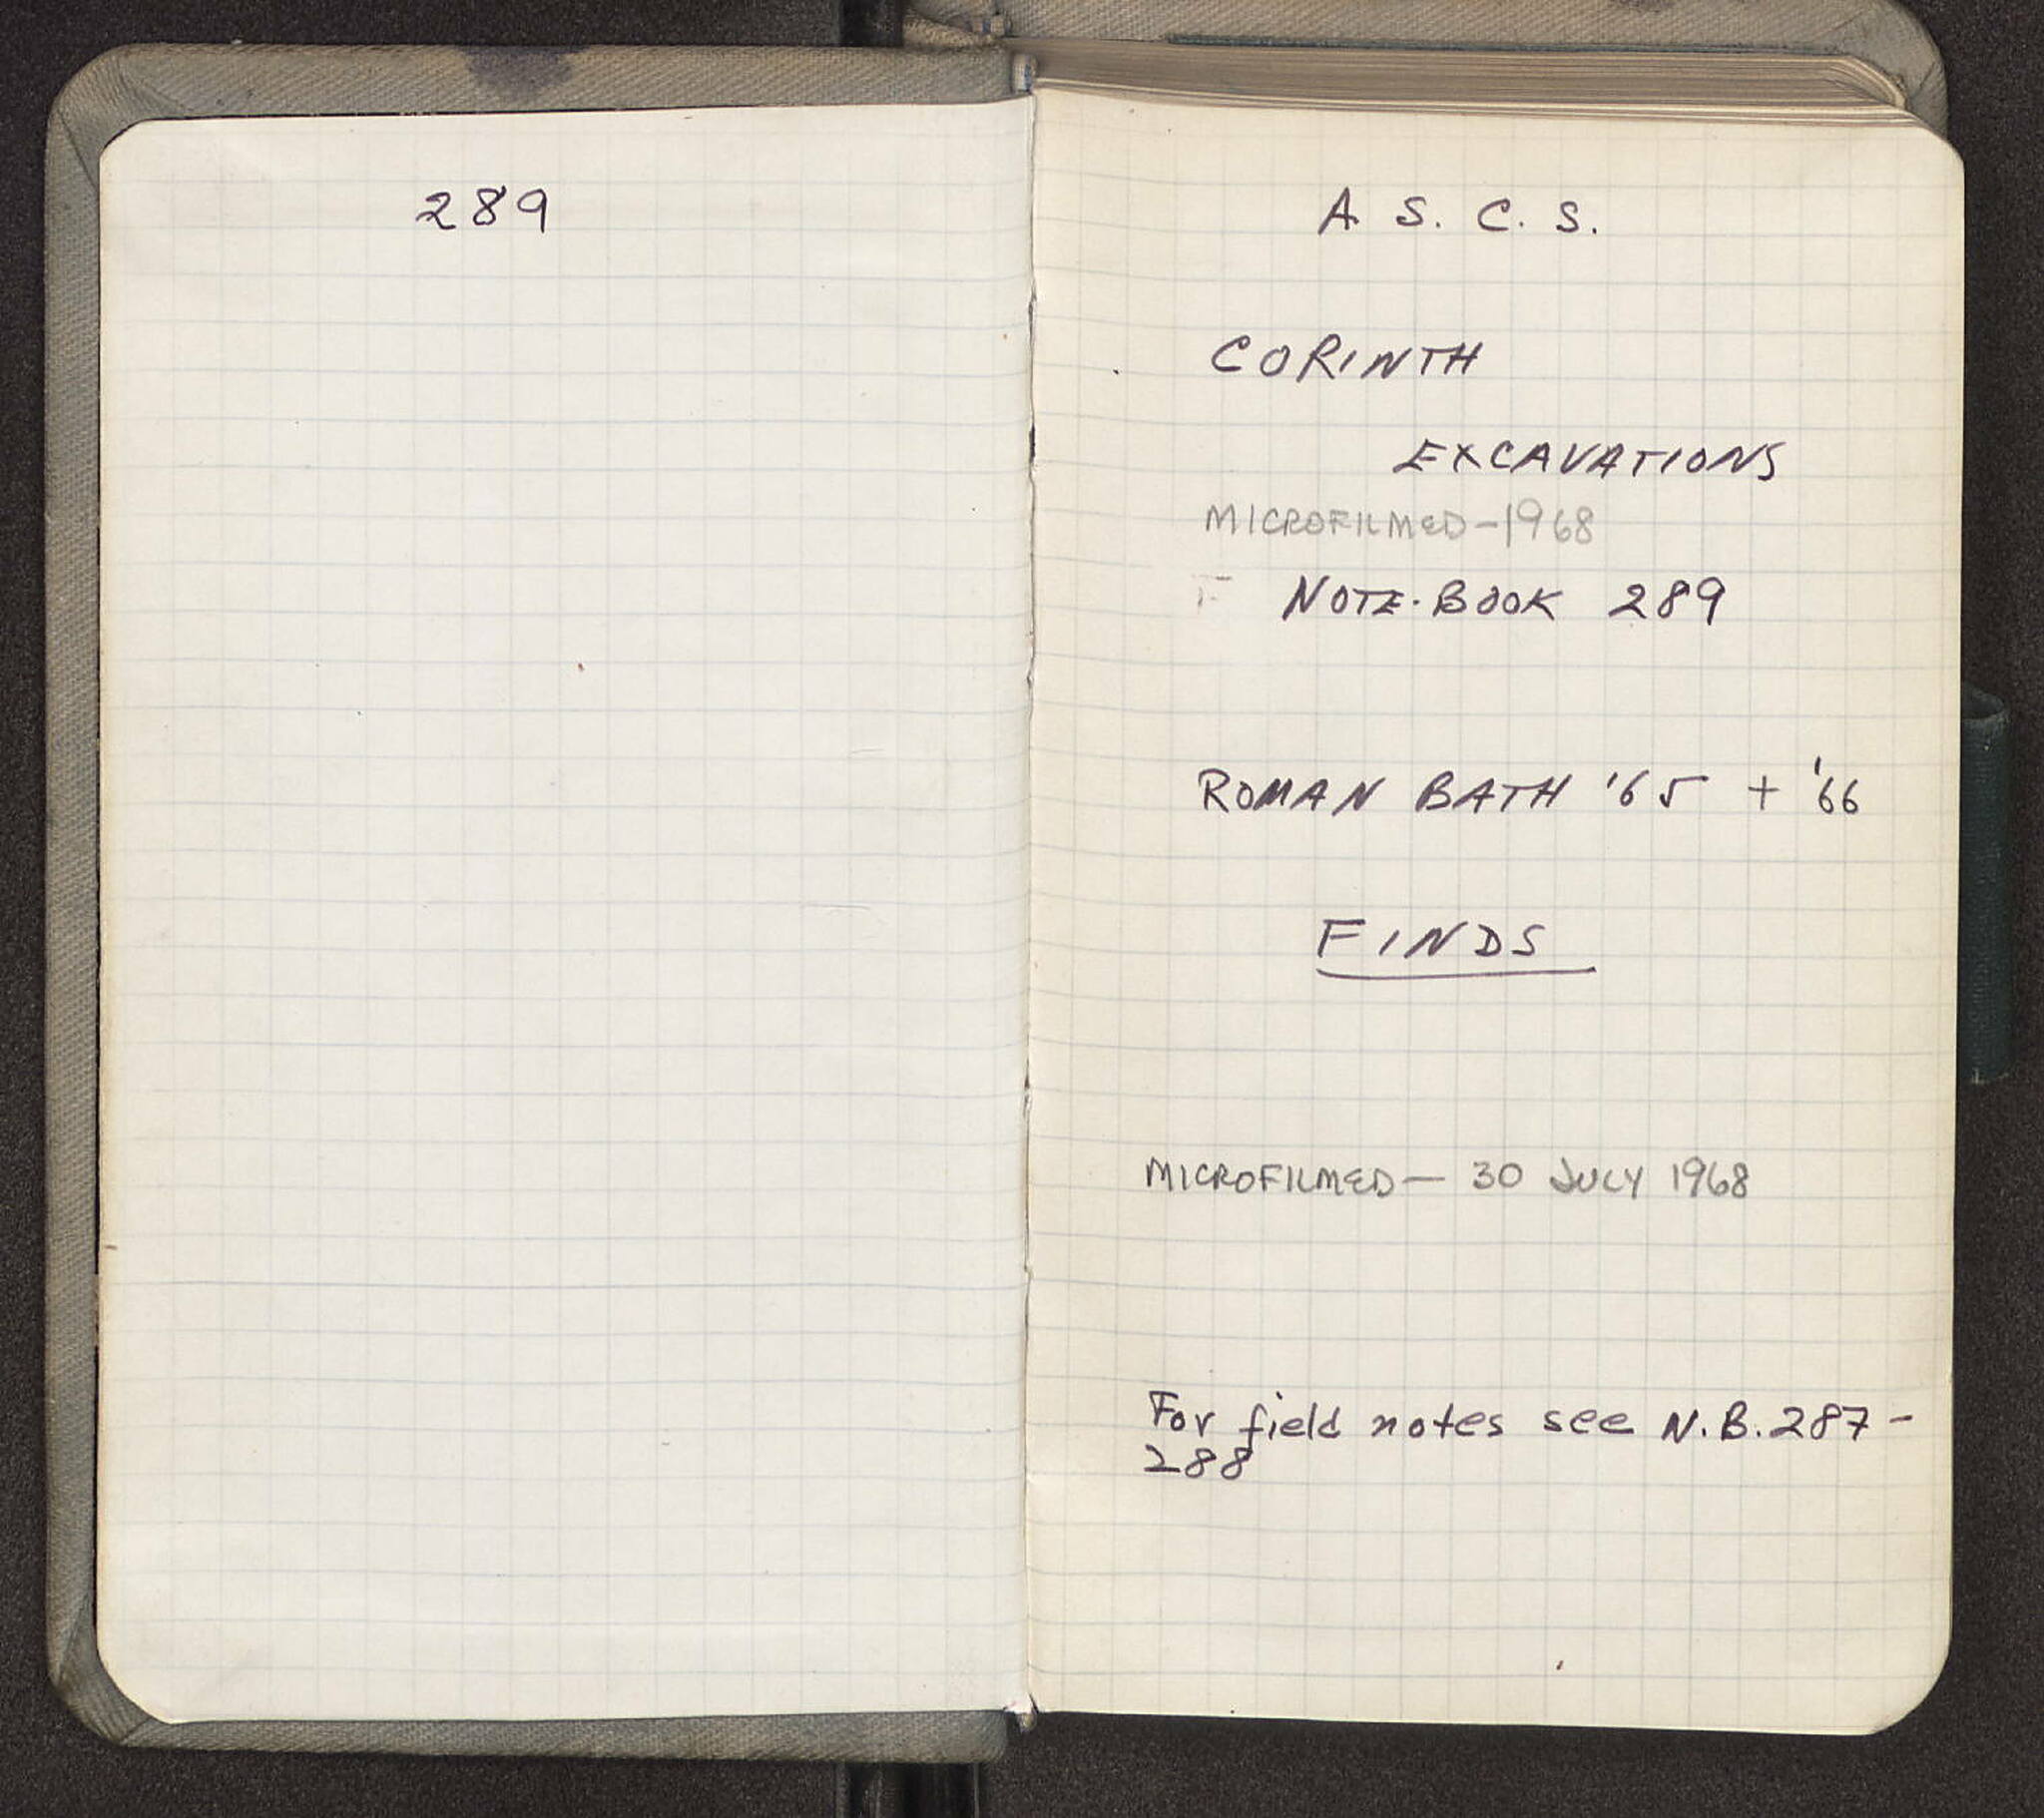 289
A. S. C. S.
CORINTH
EXCAVATIONS
MICROFILMED-1968
NOTE-BOOK 289
ROMAN BATH '65 + '66
FINDS
MICROFILMED— 30 JULY 1968
For field notes see N.B. 287-
288